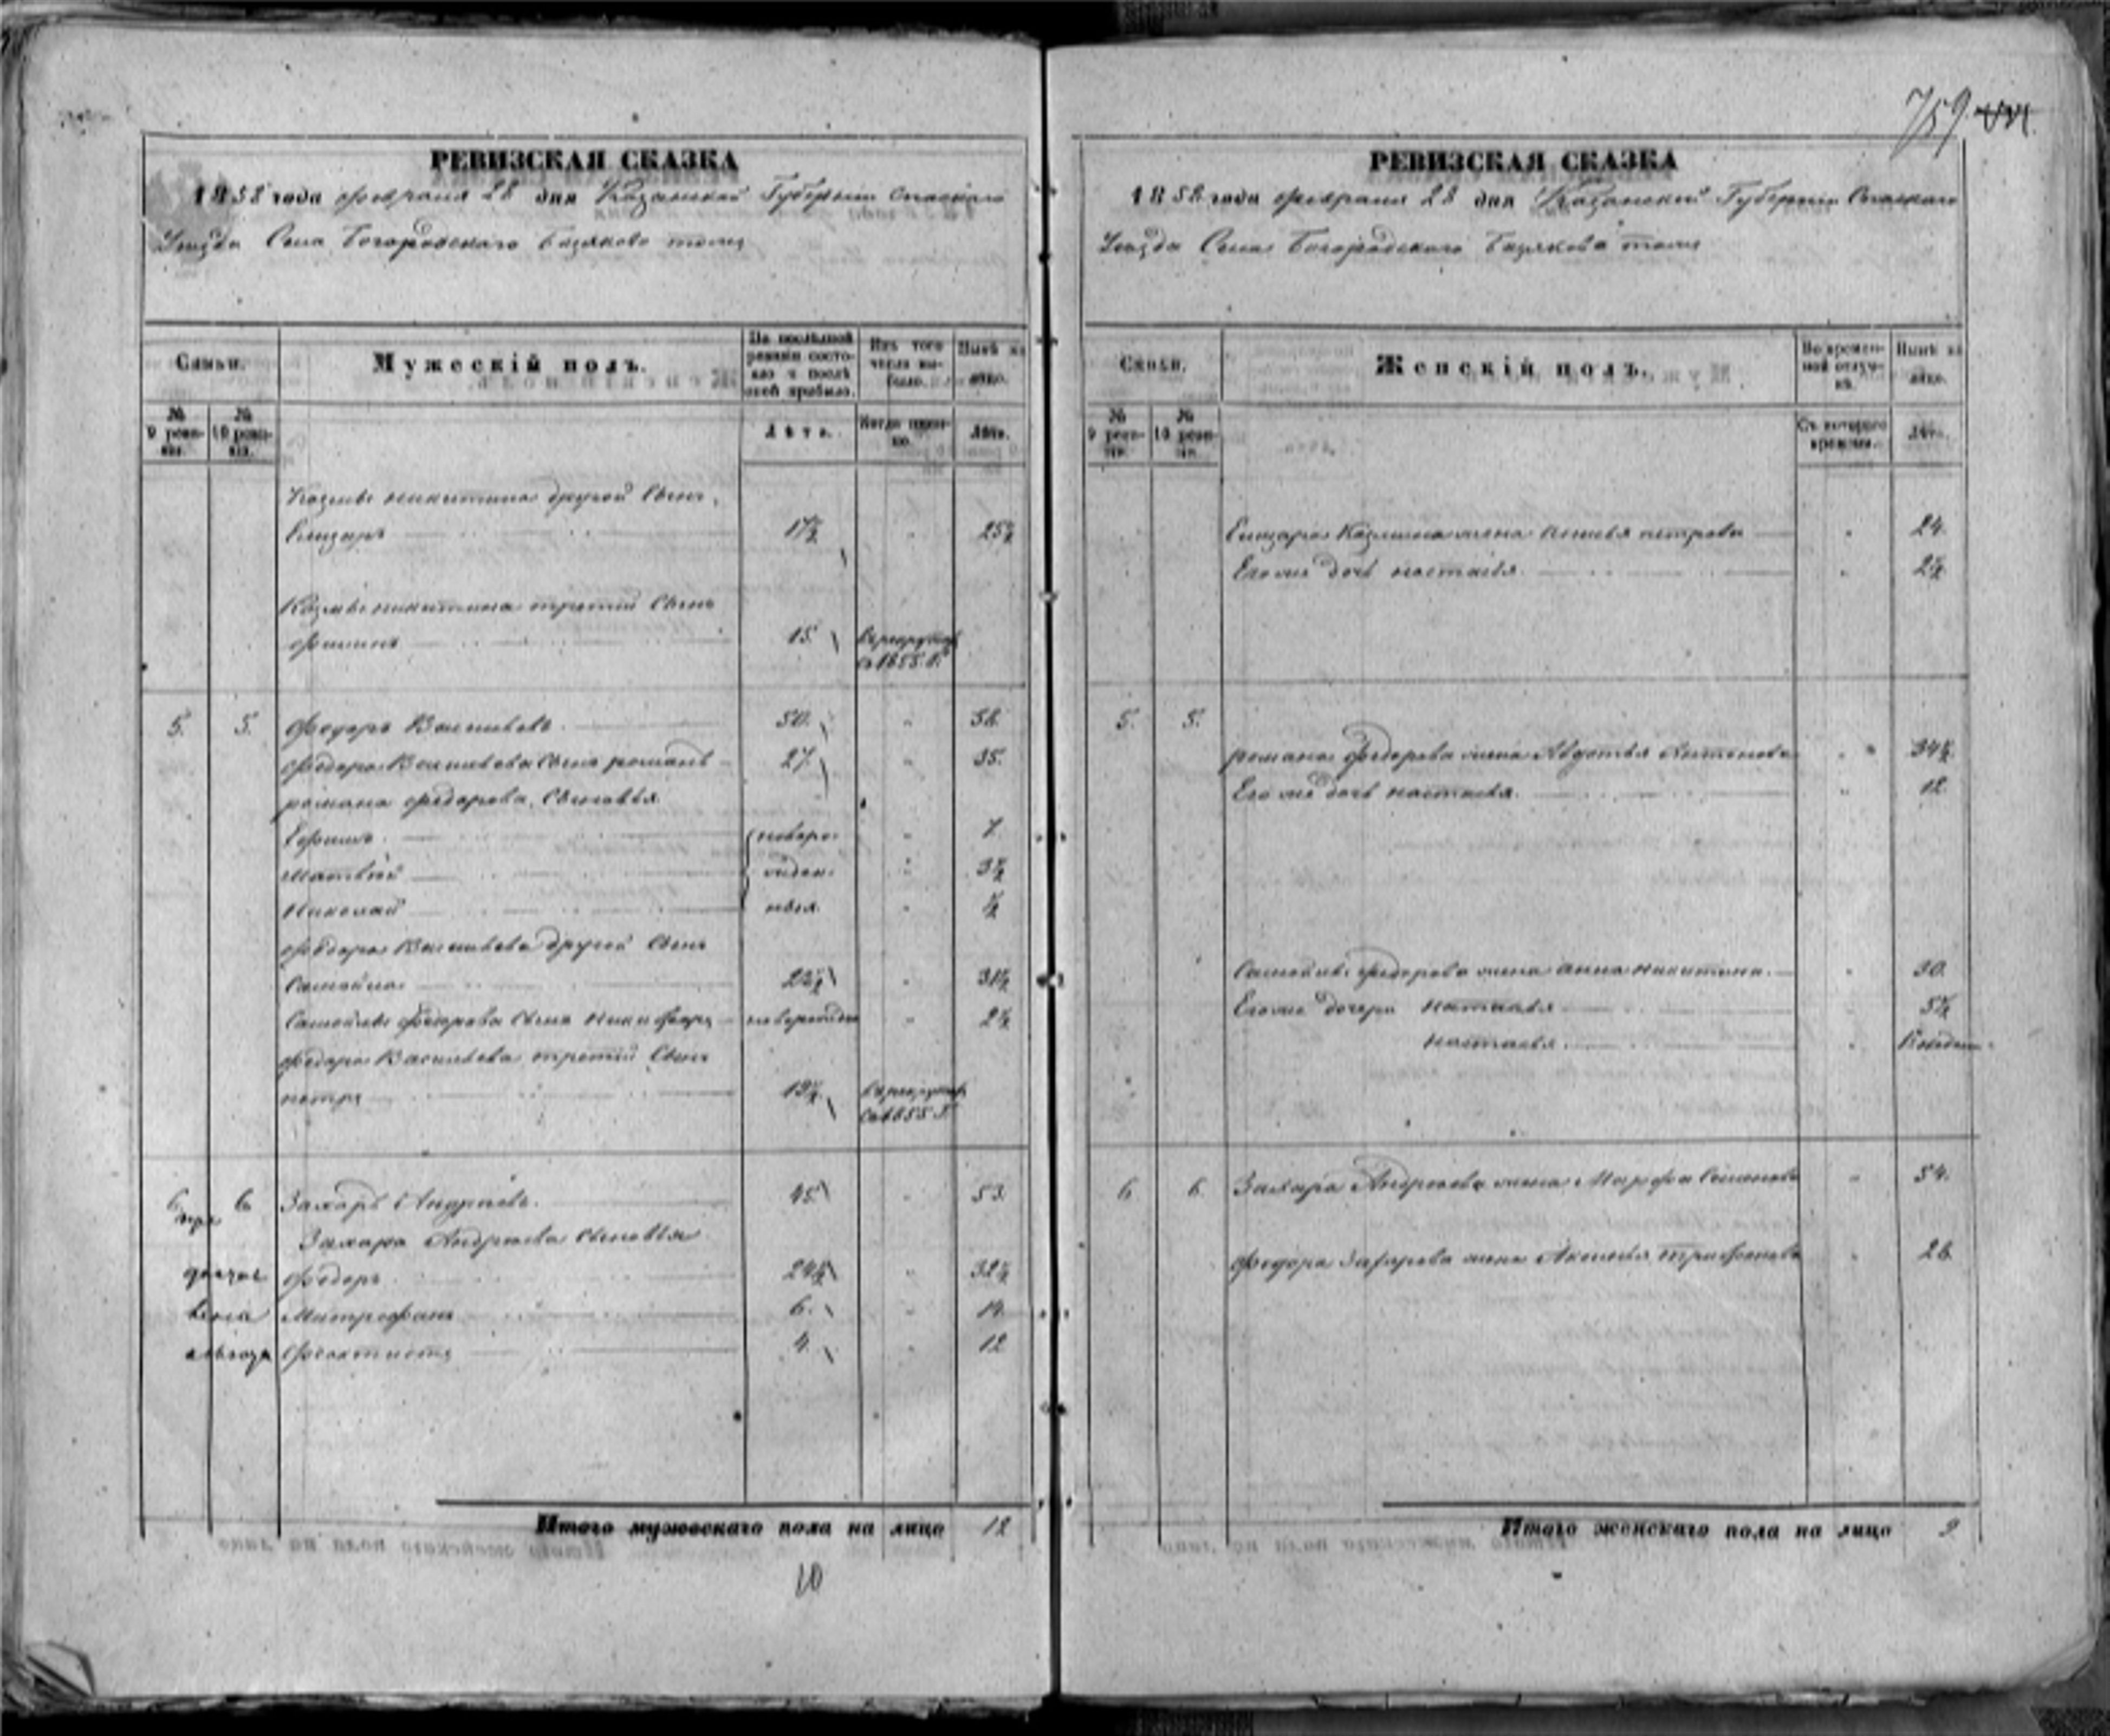 759
РЕВИЗСКАЯ СКАЗКА
1858 года февраля 28 дня Казанской Губернии Спаскаго
Уезда Села Богородскаго Базяково тожъ
Семьи.
Мужескій полъ.
По послѣдней ревизіи состояло и послѣ оной прибыло.
Изъ того числа выбыло.
Нынѣ на лицо.
№ 9 ревизіи.
№ 10 ревизіи.
Лѣта.
Когда именно.
Лѣта.
Козмы никитина другой Сынъ,
Елизаръ 17½ 25½
Козмы никитина третій Сынъ
филипъ 15 врекруты
в 1855 г.
5. 5. федоръ Васильевъ 50. 58.
федора Васильева Сынъ романъ 27. 35.
романа федорова Сыновья
Ефимъ новоро- 7.
матвей жден- 3½
николай ныя ½
федора Васильева другой Сынъ
Самойла 23½ 31½
Самойлы федорова Сынъ никифоръ новорожден 2½
федора Васильева третій Сынъ
петръ 19½ врекруты
в 1855 г.
6 6 Захаръ Андреевъ 45 53.
Захара Андреева Сыновья
федоръ 24½ 32½
Митрофанъ 6. 14.
феоктистъ 4. 12
Итого мужескаго пола на лицо 12
10
РЕВИЗСКАЯ СКАЗКА
1858 года февраля 28 дня Казанской Губернии Спаскаго
Уезда Села Богородскаго Базякова тожъ
Семьи.
Женскій полъ.
Во временной отлучкѣ.
Нынѣ на лицо.
№ 9 ревизіи.
№ 10 ревизіи.
Съ котораго времени.
Лѣта.
Елизара Козмина жена петрова 24.
Его же дочь настасья 2½
5. 5.
романа федорова жена Авдотья Антонова 34½
Его же дочь настасья 12
Самойлы федорова жена анна никитина 30.
Его же дочери наталья 5½
настасья
6 6. Захара Андреева жена Марфа Семенова 54.
федора Захарова жена Акилина трифонова 28.
Итого женскаго пола на лицо 9